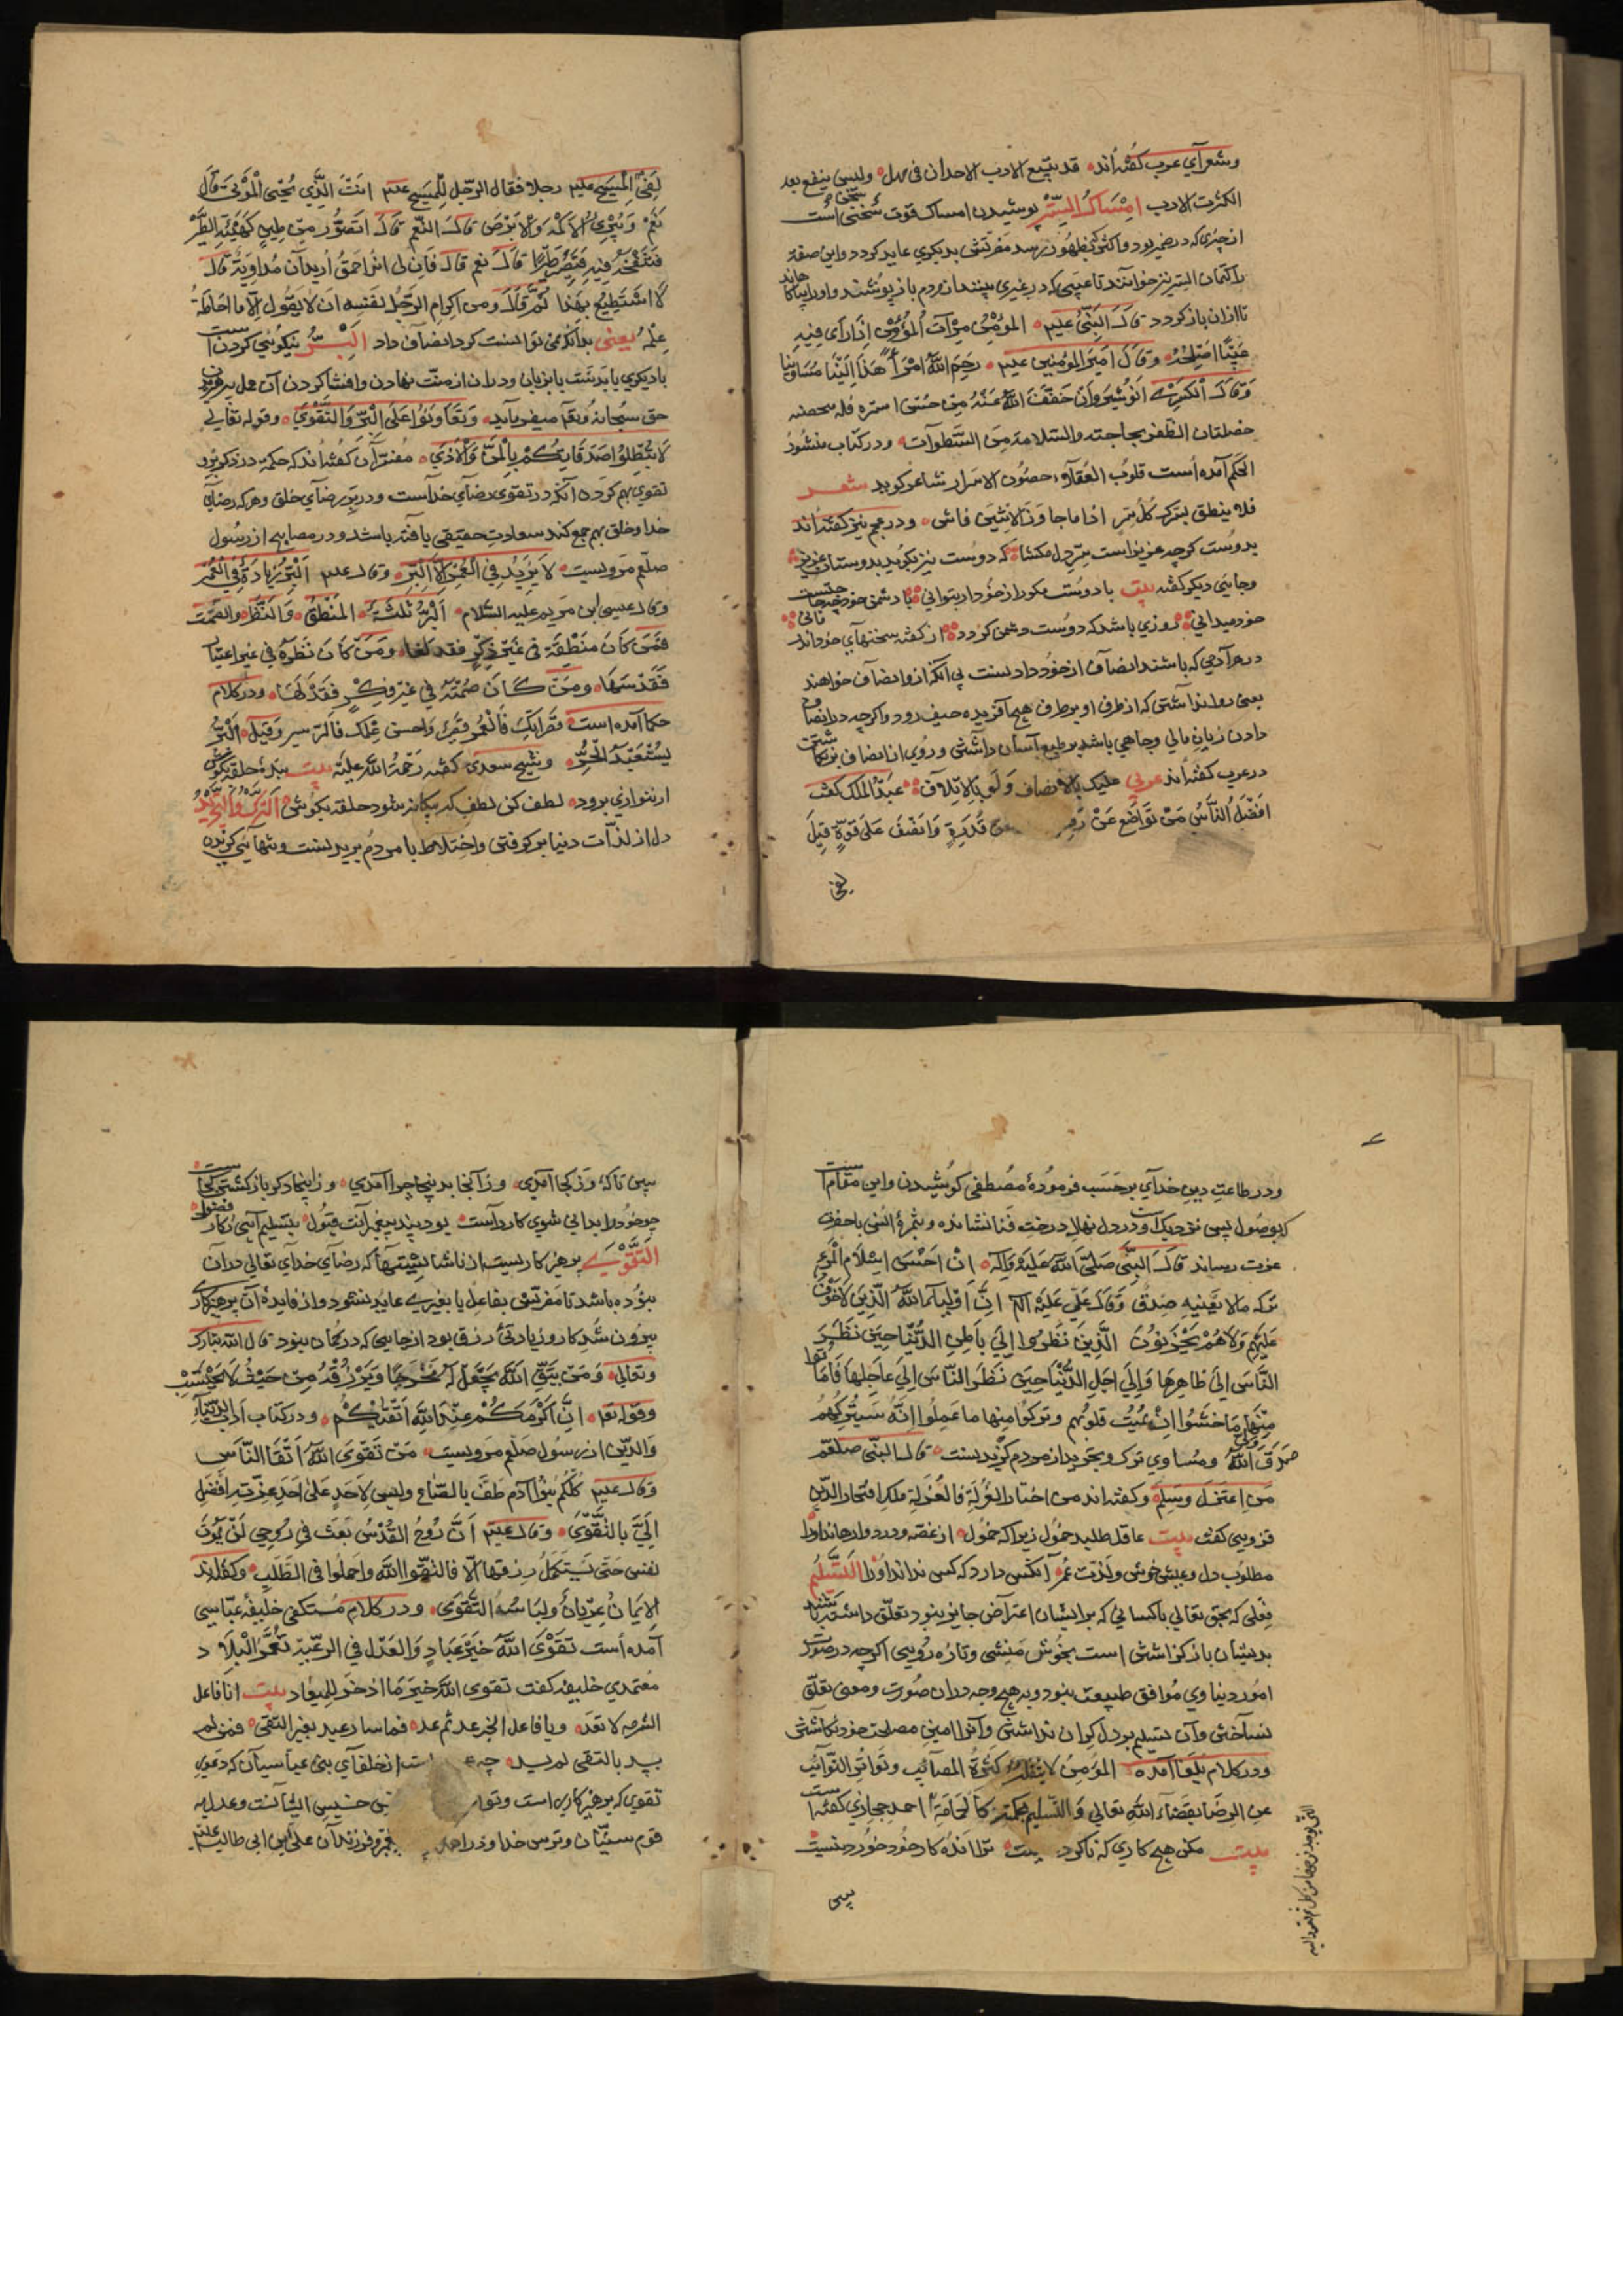 وشعرآي عرب کفته‌اند قد ینفع الادب الاحداث فی مهل ولیس ینفع بعد
الکثرت الادب امساك السّر پوشیدن امساك قوت سخنی است
از چیزی که در ضمیر بود واکثر که بظهور رسد مضرتش بدیکری عاید کردد واین صفة
را کتمان السر نیز خوانند تا عیبی که در غیری بیند از مردم باز پوشند واورا بپاکا هاند
تا ازان باز کردد قال النبی علیم المؤمن مرآت المؤمن اذا رای فیه
عیبًا اصلحه وقال امیر المومنین علیم رحم الله امرأً هذا الینا مساوینا
وقال الکسری انوشیروان خفف الله عنه من حسنی استره فله بتحصنه
خصلتان الظفر بحاجته والسلامة من السطوات ودر کتاب منشور
الحکم آمده است قلوب العقلاء حصون الاسرار شاعر کوید شعر
فلا ینطق بسرك کل سر اذا ما جاوز الاثنین فاشی ودر عجم نیز کفته‌اند
بدوست کرچه عزیز است سر دل مکشا که دوست نیز بکوید بدوستان عزیز
وجایی دیکر کفته بیت با دوست مکو راز خود ار بتوانی با دشمن خود
خود میدانی روزی باشد که دوست دشمن کردد از کفته سخنهای خود
در مرآدمی که باشند انصاف از خود داد نست پی آنکه ازو انصاف خواهند
یعنی روا نداشتن که از طرف او بر طرف هیچ آفریده حیف رود واکرچه در انصاف
دادن زیان مالی وجاهی باشد بر طبع آسان داشتن وروی از انصاف برنکاشتن
در عرب کفته‌اند عربی علیك بالانصاف ولو بالاتلاف عبد الملك کفت
افضل الناس من تواضع عن رفعـ عن قدرة وانصف علی قوة قیل
لقی
لقی المسیح علیم رجلا فقال الرجل للمسیح علیم انت الذی یحیی الموتی قال
نعم وتبرئ الاکمه والابرص قال النعم قال اتصور من طین کهیئة الطیر
فتنفخه فیه فتصیر طیرًا قال نعم قال فان لی اخ احمق ارید ان مداویه قال
لا استطیع بهذا ثم قال ومن اکرام الرجل لنفسه ان لا یقول الا ما احاط به
علمه یعنی بدانکه من نتوانست کرد انصاف داد البرّ نیکوئی کردن است
با دیکری یا بدست یا بزبان ودران از منت نهادن وافشا کردن آن عمل پرهیزیدن
حق سبحانه وتعالی میفرماید وتعاونوا علی البر والتقوی وقوله تعالی
لا تبطلوا صدقاتکم بالمن والاذی مفسران کفته‌اند که حکمة در ذکر برّ
تقوی بهم کرده آنکه در تقوی رضای خداست ودر بر رضای خلق وهرکه رضای
خدا وخلق بهم جمع کند سعادت حقیقی یافته باشد ودر مصابیح از رسول
صلعم مرویست لا یزید فی العمر الا البر وقال علیم البر زیادة فی العمر
وقال عیسی ابن مریم علیه السلام البر ثلثة المنطق والنظر والصمت
فمن کان منطقه فی غیر ذکر فقد لغا ومن کان نظره فی غیر اعتبار
فقد سها ومن کان صمته فی غیر فکر فقد لها ودر کلام
حکما آمده است قرابك فالعمر قصیر واحسن عملك فالبر سیر وقیل البر
یستعبد الحر وشیخ سعدی کفته رحمة الله علیه بیت بنده حلقه بکوش
ار ننوازی برود لطف کن لطف که بیکانه شود حلقه بکوش الترك والتجرید
دل از لذآت دنیا برکرفتن واختلاط با مردم بریدنست وتنهایی کزیدن
ودر طاعت دین خدای بر حسب فرموده مصطفی کوشیدن واین مقام است
که بوصول پس نزدیك است ودر دل نهال درخت فنا نشانده وبثمره انس با حضرت
عزت رساند قال النبی صلی الله علیه وآله ان احسن اسلام المرء
ترکه مالا یعنیه صدق وقال علی علیه الم ان اولیاء الله الذین لا خوف
علیهم ولا هم یحزنون الذین نظروا الی باطن الدنیا حین نظر
الناس الی ظاهرها والی اجل الدنیا حین نظر الناس الی عاجلها فاماتوا
منها ما خشوا ان یمیت قلوبهم وترکوا منها ما علموا انه سیترکهم
صدق الله ومساوی ترك وتجرید از مردم کزیدنست قال النبی صلعم
من اعتزل وسلم وکفته‌اند من اختار العزلة فالعزلة ملك افتخار الدین
قزوینی کفت بیت عاقل طلبد خمول زیرا که خمول از غصه ودرد وا رهاند او را
مطلوب دل وعیش خوش ولذت عمر آنکس دارد که کس نداند او را التسلیم
فعلی که بحق تعالی با کسانی که بر ایشان اعتراض جایز نبود تعلق داشته باشد
بدیشان باز کزاشتن است بخوش منشی وتازه رویی اکرچه در صورت
امور دنیاوی موافق طبیعت نبود وبه هیچ وجه در ان صورت ومعنی تعلق
نساختن وآن تسلیم بر دل کران نداشتن وآنرا امین مصلحت خود نکاشتن
ودر کلام بلغا آمده المؤمن لا یثقله کثرة المصائب وتواتر النوائب
عن الرضا بقضاء الله تعالی والتسلیم بحکمه کالحمامة احمد حجازی کفته است
بیت مکن هیچ کاری که ناکرد بیت ترا اندُه کار خود خورد نیست
پس
ببین تا که وز کجا آمدی وز آنجا بدینجا چرا آمدی وز اینجا دکر باز کشتن کجا ست
چو خود را بدانی شوی کار راست بود پند پیغمبرانت قبول بتسلیم آیی ز کار فضول
التقوی پرهیز کاریست از ناشایستیها که رضای خدای تعالی در آن
نبوده باشد تا مضرتش بفاعل یا بغیری عاید نشود واز فایده آن پرهیزکاری
بیرون شد کار وزیادتی رزق بود از جایی که در کمان نبود قال الله تبارك
وتعالی ومن یتق الله یجعل له مخرجا ویرزقه من حیث لا یحتسب
وقوله تعا ان اکرمکم عند الله اتقیکم ودر کتاب ادب الدنیا
والدین از رسول صلعم مرویست من تقوی الله اتقا الناس
وقال علیم کلکم بنوا آدم طف بالصاع ولیس لاحد علی احد عزت افضل
الی بالتقوی وقال علیم ان روح القدس نفث فی روحی لن یموت
نفس حتی تستکمل رزقها الا فالتقوا الله واجملوا فی الطلب وکفته‌اند
الایمان عریان ولباسه التقوی ودر کلام مستکفی خلیفه عباسی
آمده است تقوی الله خیر عباد والعدل فی الرعیة تعمر البلاد
معتمدی خلیفه کفت تقوی الله خیر ما اذخر للمیعاد بیت انا فاعل
الشر مه لا تعد ویا فاعل الخیر عد ثم عد فما ساد عبد بغیر التقی فمن لم
یسد بالتقی لم یسد چه از خلفای بنی عباسیان که دعوی
تقوی که پرهیزکاری است وتقو خسیس ایشانست وعدلیه
قوم سنیان وترس خدا ودر اهل وفرزندان علی ابن ابی طالب علیه